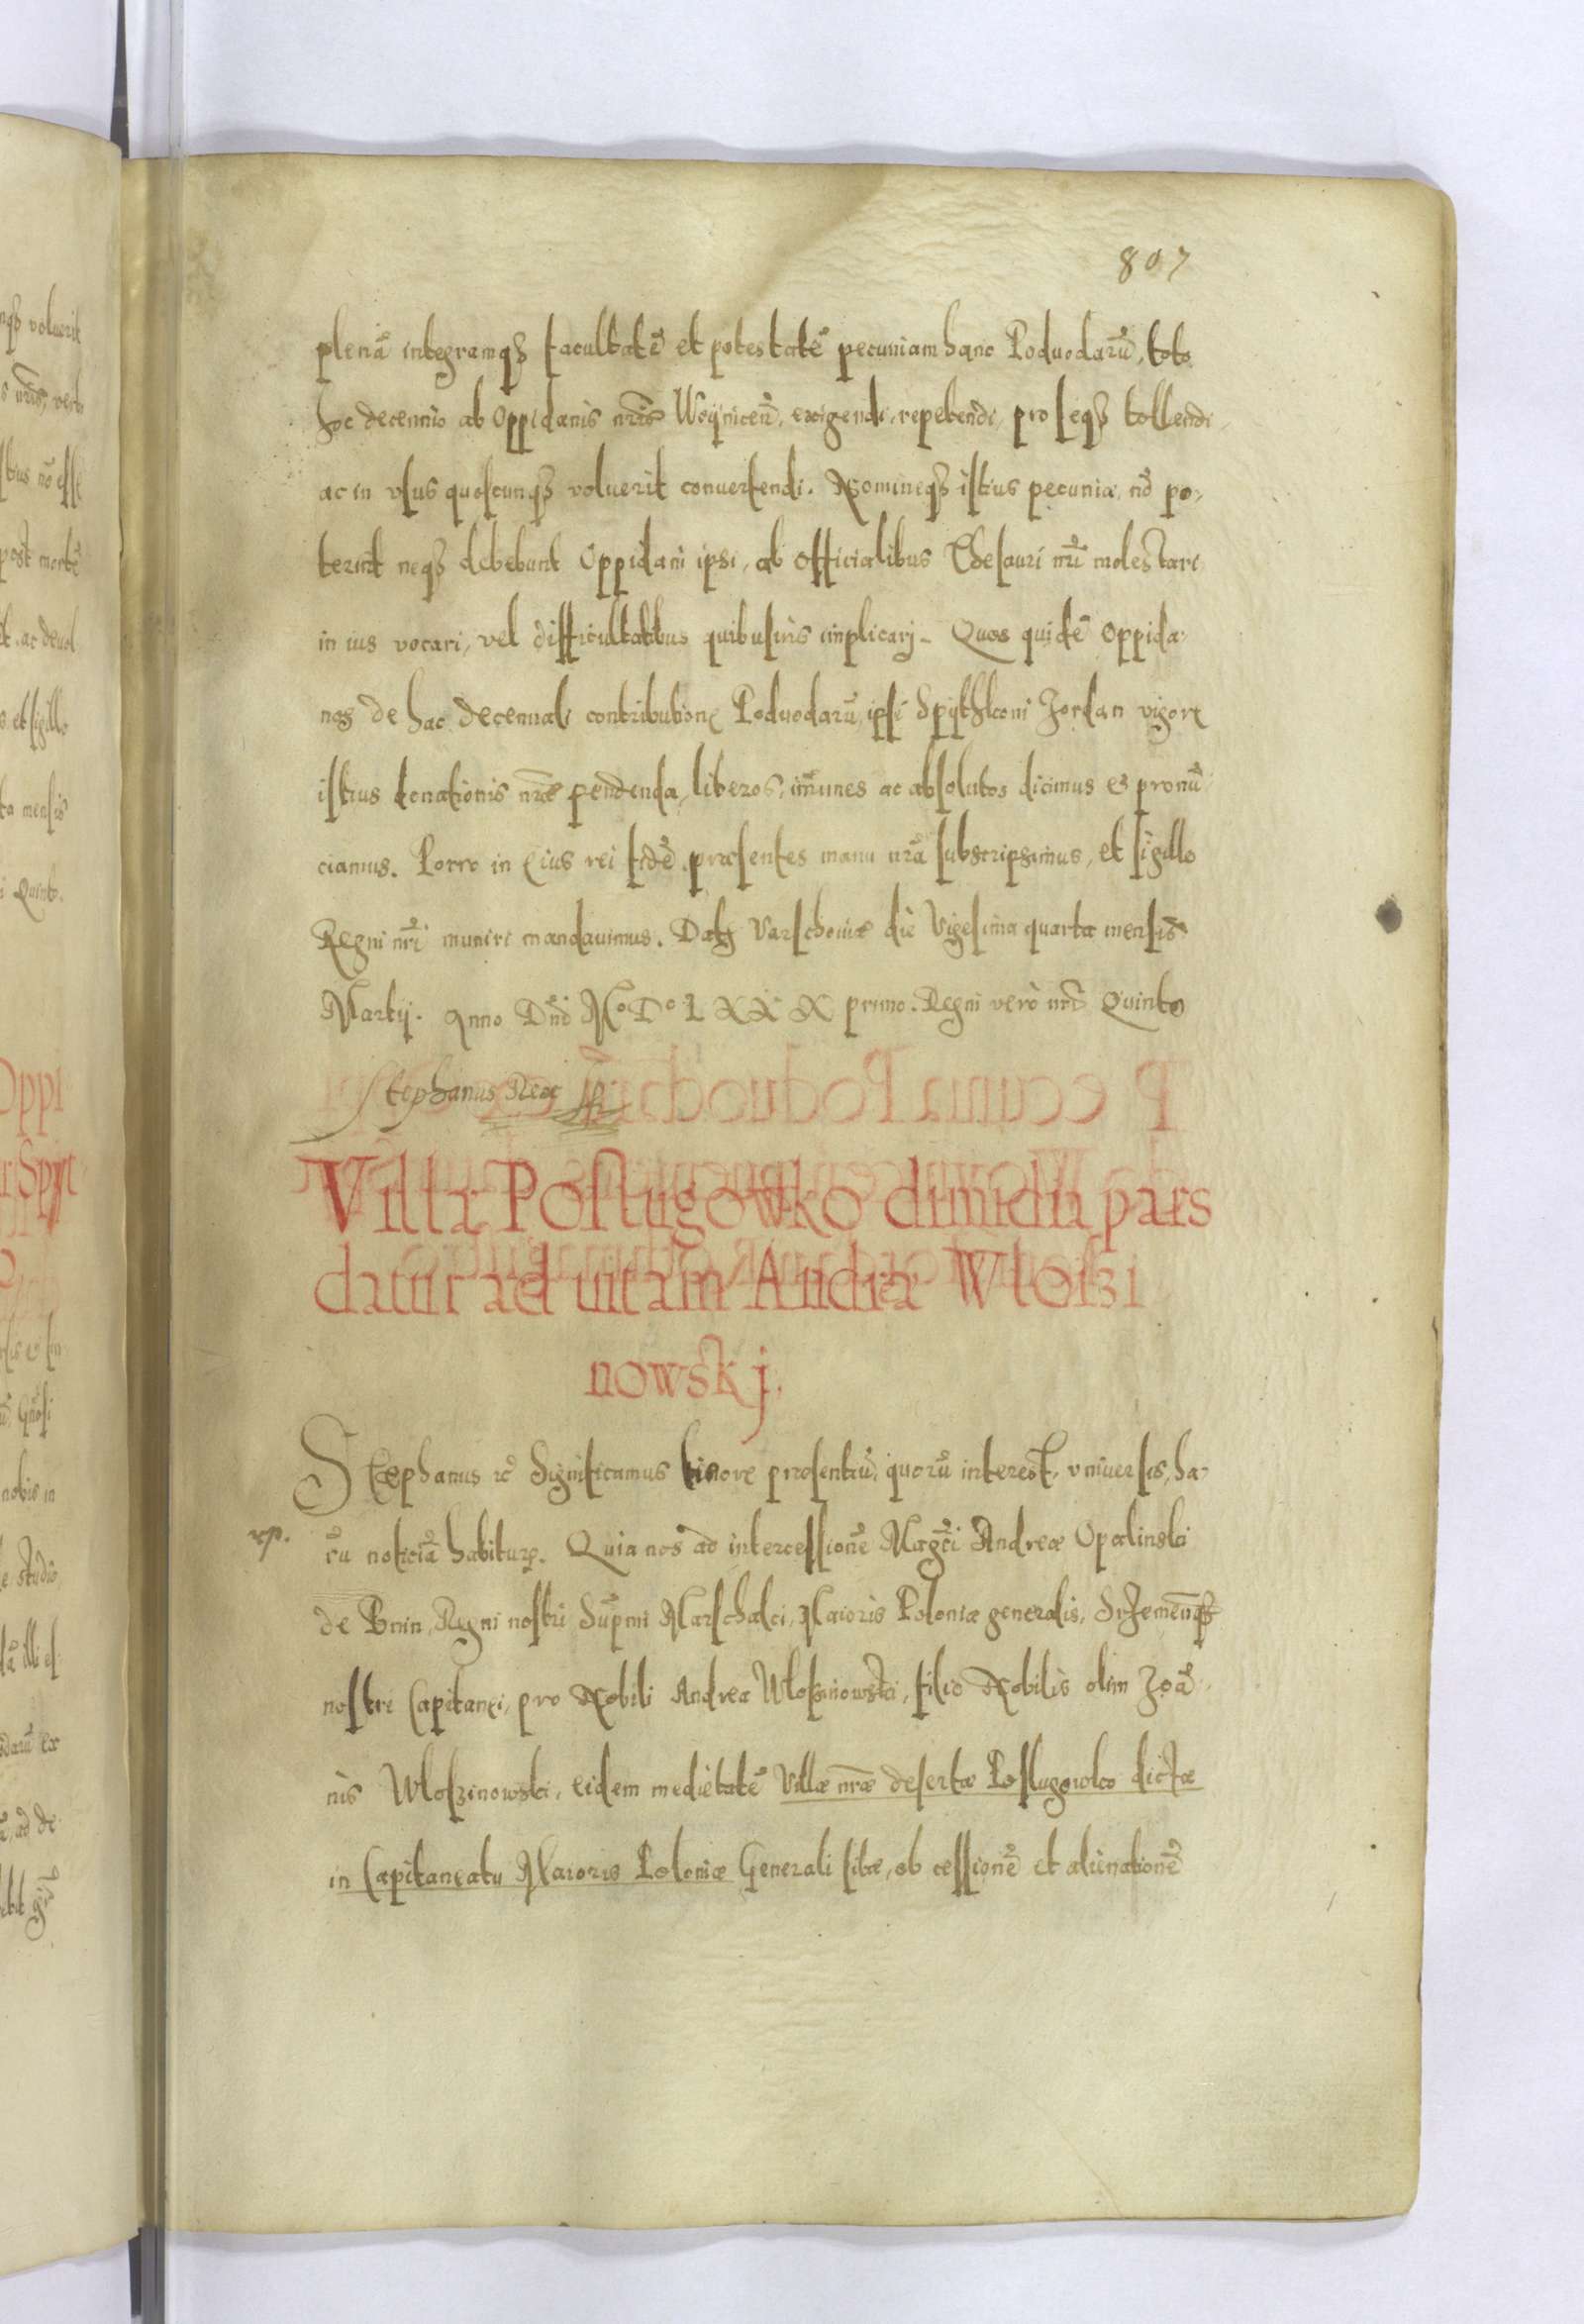 807
plenā integramq̃ facultatē et potestatē pecuniam hanc Poduodarū, toto
hoc decennio ab Oppidanis nr̃is Woÿnicen̄, exigendi, repetendi, pro seq̃ tollendi,
ac in vsus quoscunq̃ voluerit conuertendi. Nomineq̃ istius pecuniæ, nō po,
terint neq̃ debebunt Oppidani ipsi, ab Officialibus Thesauri nr̃i molestari
in ius vocari, vel difficultatibus quibusuis implicarj. Quos quidē Oppida,
nos de hac decennali contributione Poduodarū, ipsi Spÿthkoni Jordan vigore
istius donationis nr̃æ pendenda, liberos, im̃unes ac absolutos dicimus & pronū,
ciamus. Porro in eius rei fidē præsentes manu nr̃a subscripsimus, et sigillo
Regni nr̃i muniri mandauimus. Datȝ Varschouiæ die Vigesima quarta mensis
Martij. Anno Dn̄i Mº Dº L XX X primo. Regni vero nr̃i Quinto
Stephanus Rex
Villæ Poslugowko dimidia pars
datur ad uitam Andræ Wlosʒi
nowskj.
Stephanus ꝛc̃ Significamus tenore præsentiū, quorū interest, vniuersis, ha,
rū noticiā habituris. Quia nos ad intercessionē Mag̃ci Andreæ Opalinski
de Bnin, Regni nostri Sup̃mi Marschalci, Maioris Poloniæ generalis, Srzemen̄q̃
nostri Capitanei, pro Nobili Andrea Wloszinowski, filio Nobilis olim Joā,
nis Wloszinowski, eidem medietatē Villæ nr̃æ desertæ Poslugowko dictæ
in Capitaneatu Maioris Poloniæ Generali sitæ, ob cessionē et alienationē